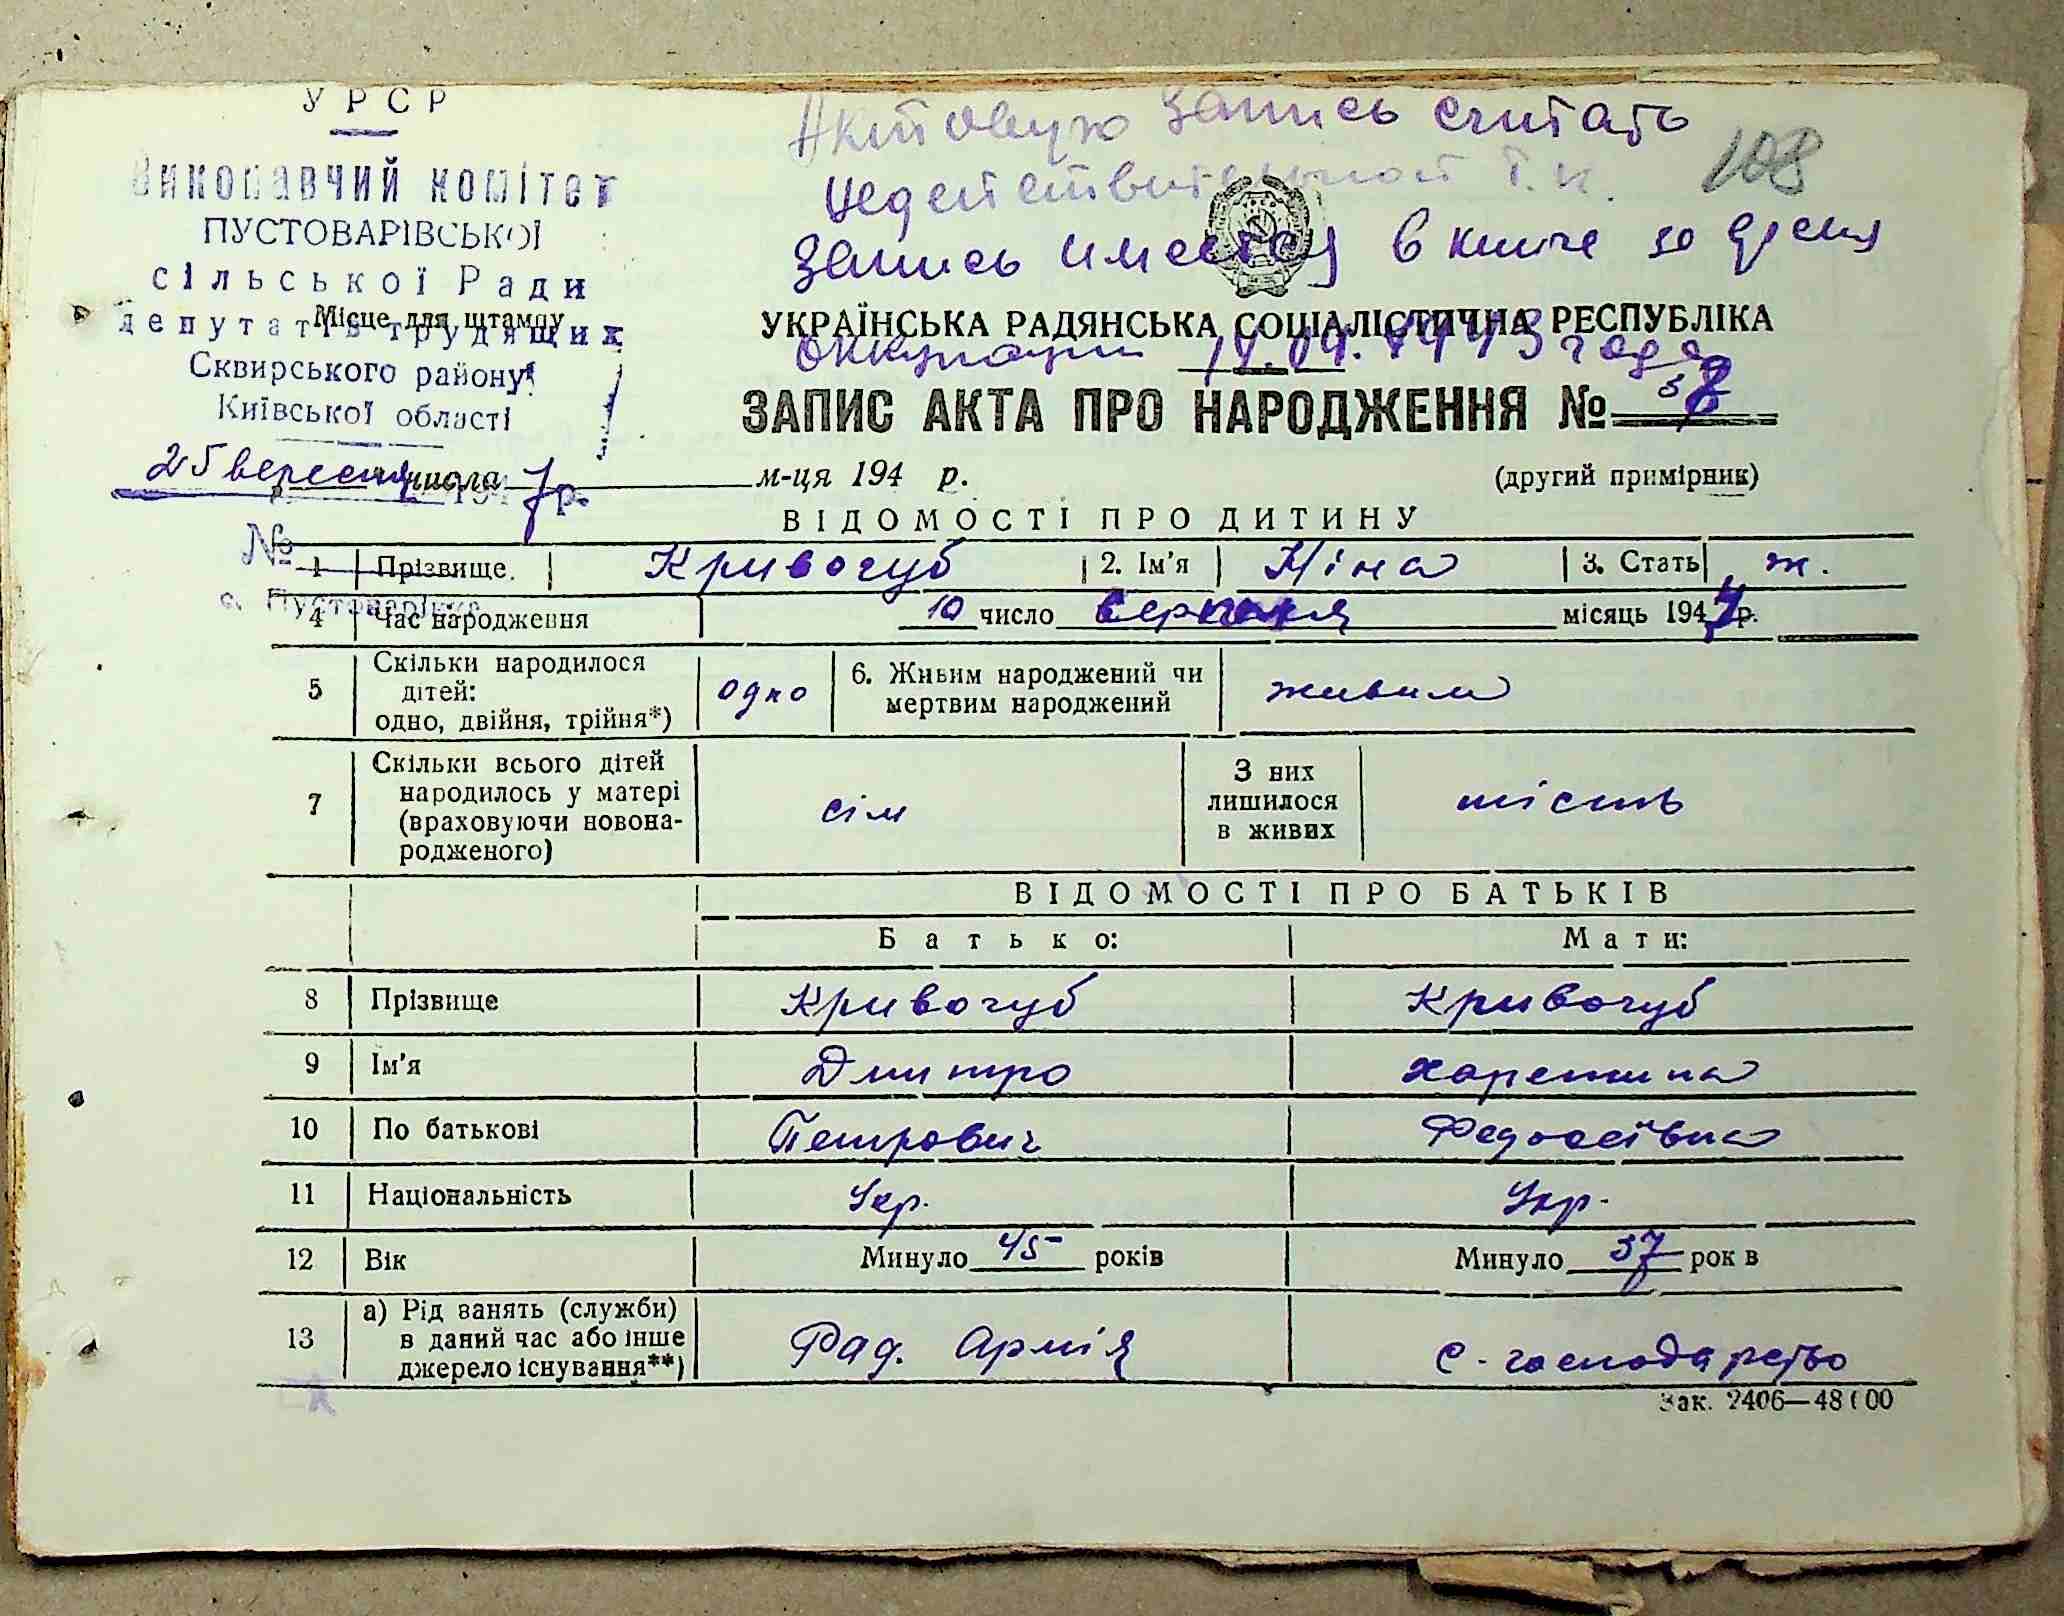 УРСР
Виконавчий комітет
ПУСТОВАРІВСЬКОЇ
сільської Ради
депутатів трудящих
Місце для штампу
Сквирського району
Київської області
25 вересня 1947 р.
числа м-ця 194 р.
№
с. Пустоварівка
Актовую запись считать
недействительной т.к.
108
запись имеется в книге за время
УКРАЇНСЬКА РАДЯНСЬКА СОЦІАЛІСТИЧНА РЕСПУБЛІКА
оккупации года
ЗАПИС АКТА ПРО НАРОДЖЕННЯ № 58
(другий примірник)
ВІДОМОСТІ ПРО ДИТИНУ
1 Прізвище Кривочуб 2. Ім'я Ніна 3. Стать ж.
4 Час народження 10 число серпня місяць 1947 р.
5 Скільки народилося дітей: одно, двійня, трійня*) одно 6. Живим народжений чи мертвим народжений живим
7 Скільки всього дітей народилось у матері (враховуючи новонародженого) сім З них лишилося в живих шість
ВІДОМОСТІ ПРО БАТЬКІВ
Батько: Мати:
8 Прізвище Кривочуб Кривочуб
9 Ім'я Дмитро Харетина
10 По батькові Петрович Федосіївна
11 Національність Укр. Укр.
12 Вік Минуло 45 років Минуло 37 рок в
13 а) Рід занять (служби) в даний час або інше джерело існування**) Рад. Армія с-господарство
Зак. 2406—48